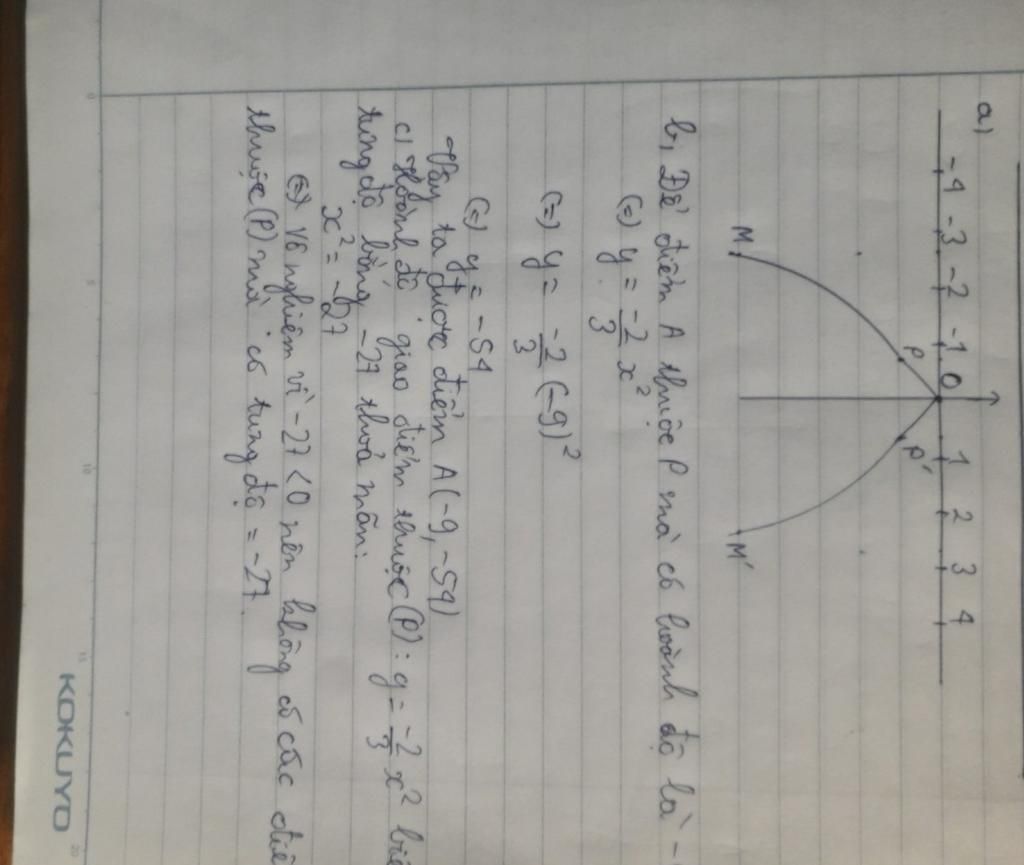 a,
-4 -3 -2 -1 0 1 2 3 4
P P'
M M'
b, Để điểm A thuộc P mà có hoành độ là -
(=) y = -2/3 x²
(=) y = -2/3 (-9)²
(=) y = -54
Vậy ta được điểm A(-9, -54)
c, Hoành độ giao điểm thuộc (P): y = -2/3 x²
tung độ bằng -27 thoả mãn:
x² = -27
(=) Vô nghiệm vì -27 < 0 nên không có các
thuộc (P) mà có tung độ = -27.
KOKUYO
0 5 10 15 20